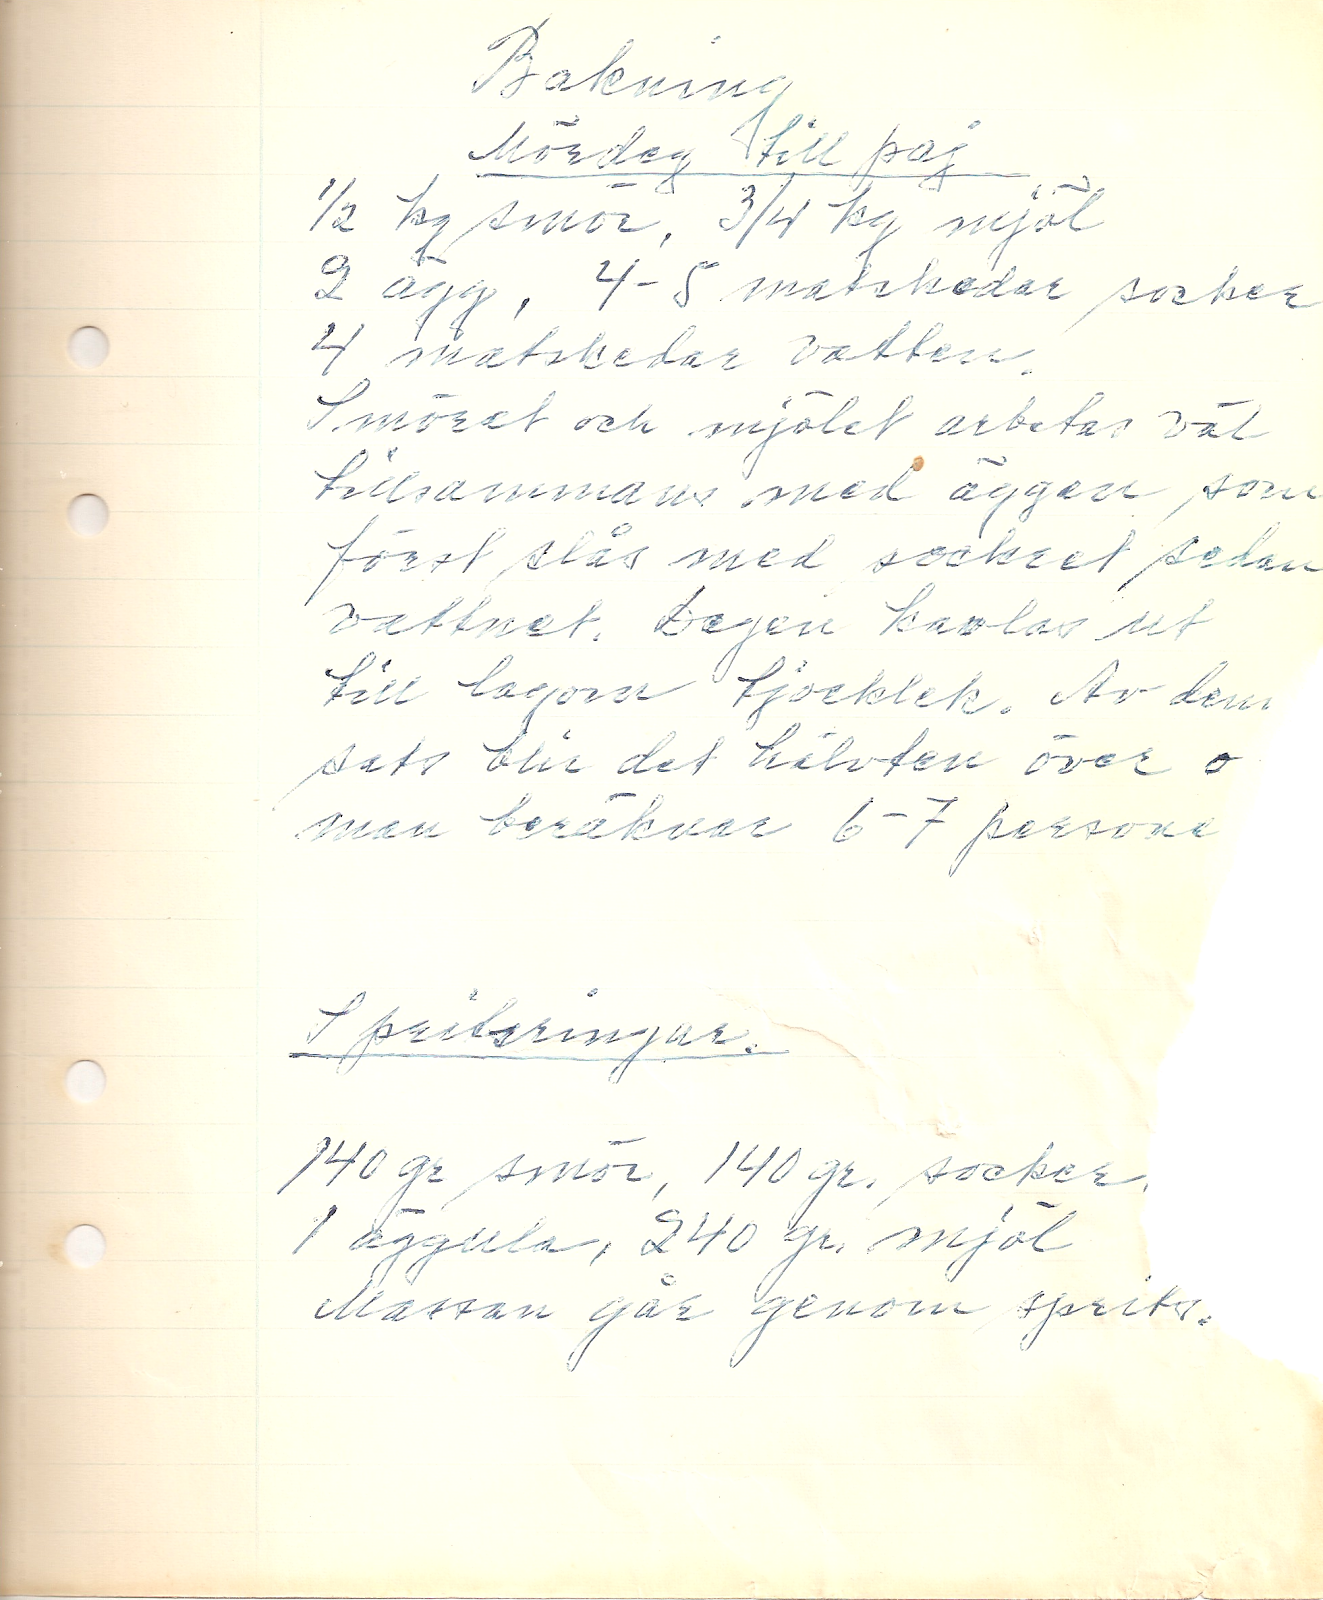 Bakning
Mördeg till paj
1/2 kg smör, 3/4 kg mjöl
2 ägg, 4-5 matskedar socker
4 matskedar vatten.
Smöret och mjölet arbetas väl
tillsammans med äggen som
först slås med sockret sedan
vattnet. Degen kavlas ut
till lagom tjocklek. Av denn
sats blir det hälvten över o
man beräknar 6-7 persone
Spritsringar.
140 gr smör, 140 gr. socker.
1 äggula, 240 gr. mjöl
Massan går genom sprits.